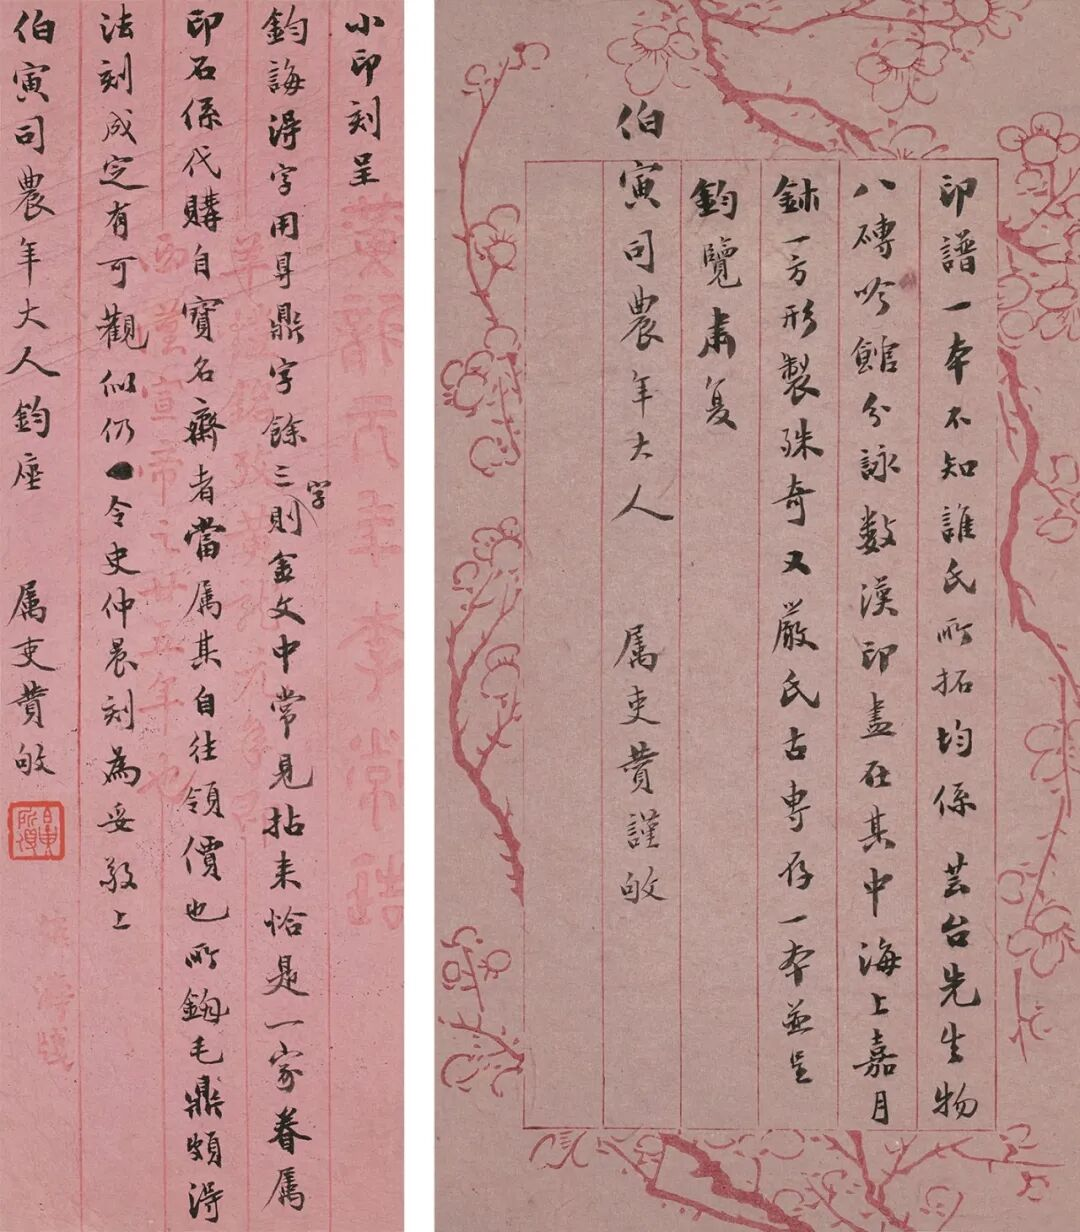 印譜一本不知誰氏所拓均係 芸台先生物
八磚吟館分詠數漢印盡在其中海上嘉月
鉥一方形製殊奇又嚴氏古專存一本並呈
鈞覽肅复
伯寅司農年大人 属吏費謹啟
小印刻呈
鈞誨淂字用㝵鼎字餘三字則金文中常見拈来恰是一家眷属
印石係代購自寶名齋者當属其自往領價也所鈎毛鼎頗淂
法刻成定有可觀似仍令史仲㫳刻為妥敬上
伯寅司農年大人鈞座 属吏費啟